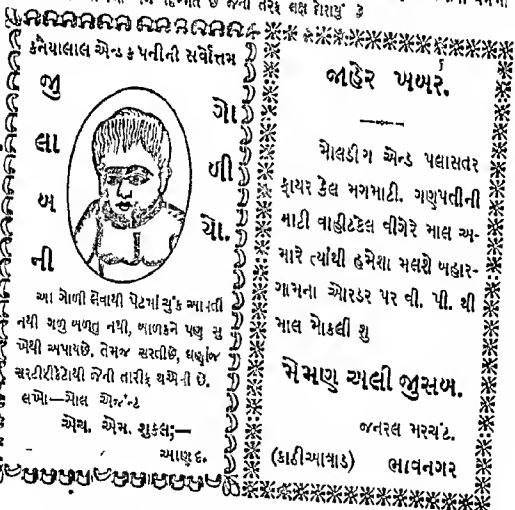 છે જેની તરફ લક્ષ દોરાયું
કનૈયાલાલ એન્ડ કંપનીની સર્વોત્તમ
જી
લા
બ
ની
ગો
ળી
યો.
આ ગોળી લેવાથી પેટમાં ચુંક આવતી
નથી ગળુ બળતુ નથી, બાળકને પણ સુ
ખેથી અપાયછે. તેમજ સસ્તીછે, ઘણાંજ
સરટીફીકેટોથી જેની તારીફ થએલી છે.
લખો—સોલ એજન્ટ
એચ. એમ. શુકલ;—
આણંદ.
જાહેર ખબર.
મોલડીંગ એન્ડ પલાસતર
ફાયર કેલ મગમાટી. ગણપતીની
માટી વાહીટકેલ વીગેરે માલ અ-
મારે ત્યાંથી હમેશા મલશે બહાર-
ગામના ઓરડર પર વી. પી. થી
માલ મોકલી શુ
મેમણ અલી જુસબ.
જનરલ મરચંટ.
(કાઠીઆવાડ) ભાવનગર